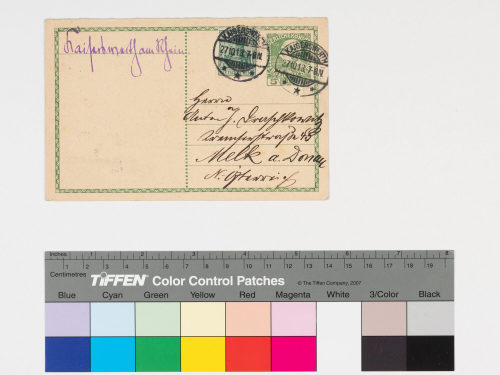 Kaiserswerth am Rhein
KAISERSWERTH
27.10.13. 7-8N.
KAISERSWERTH
27.10.13. 7-8N.
5
Herrn
Anton J. Draschkowitz
45
Melk a. Donau
N. Österreich
Inches 1 2 3 4 5 6 7 8
Centimetres 1 2 3 4 5 6 7 8 9 10 11 12 13 14 15 16 17 18 19
TIFFEN Color Control Patches © The Tiffen Company, 2007
Blue Cyan Green Yellow Red Magenta White 3/Color Black